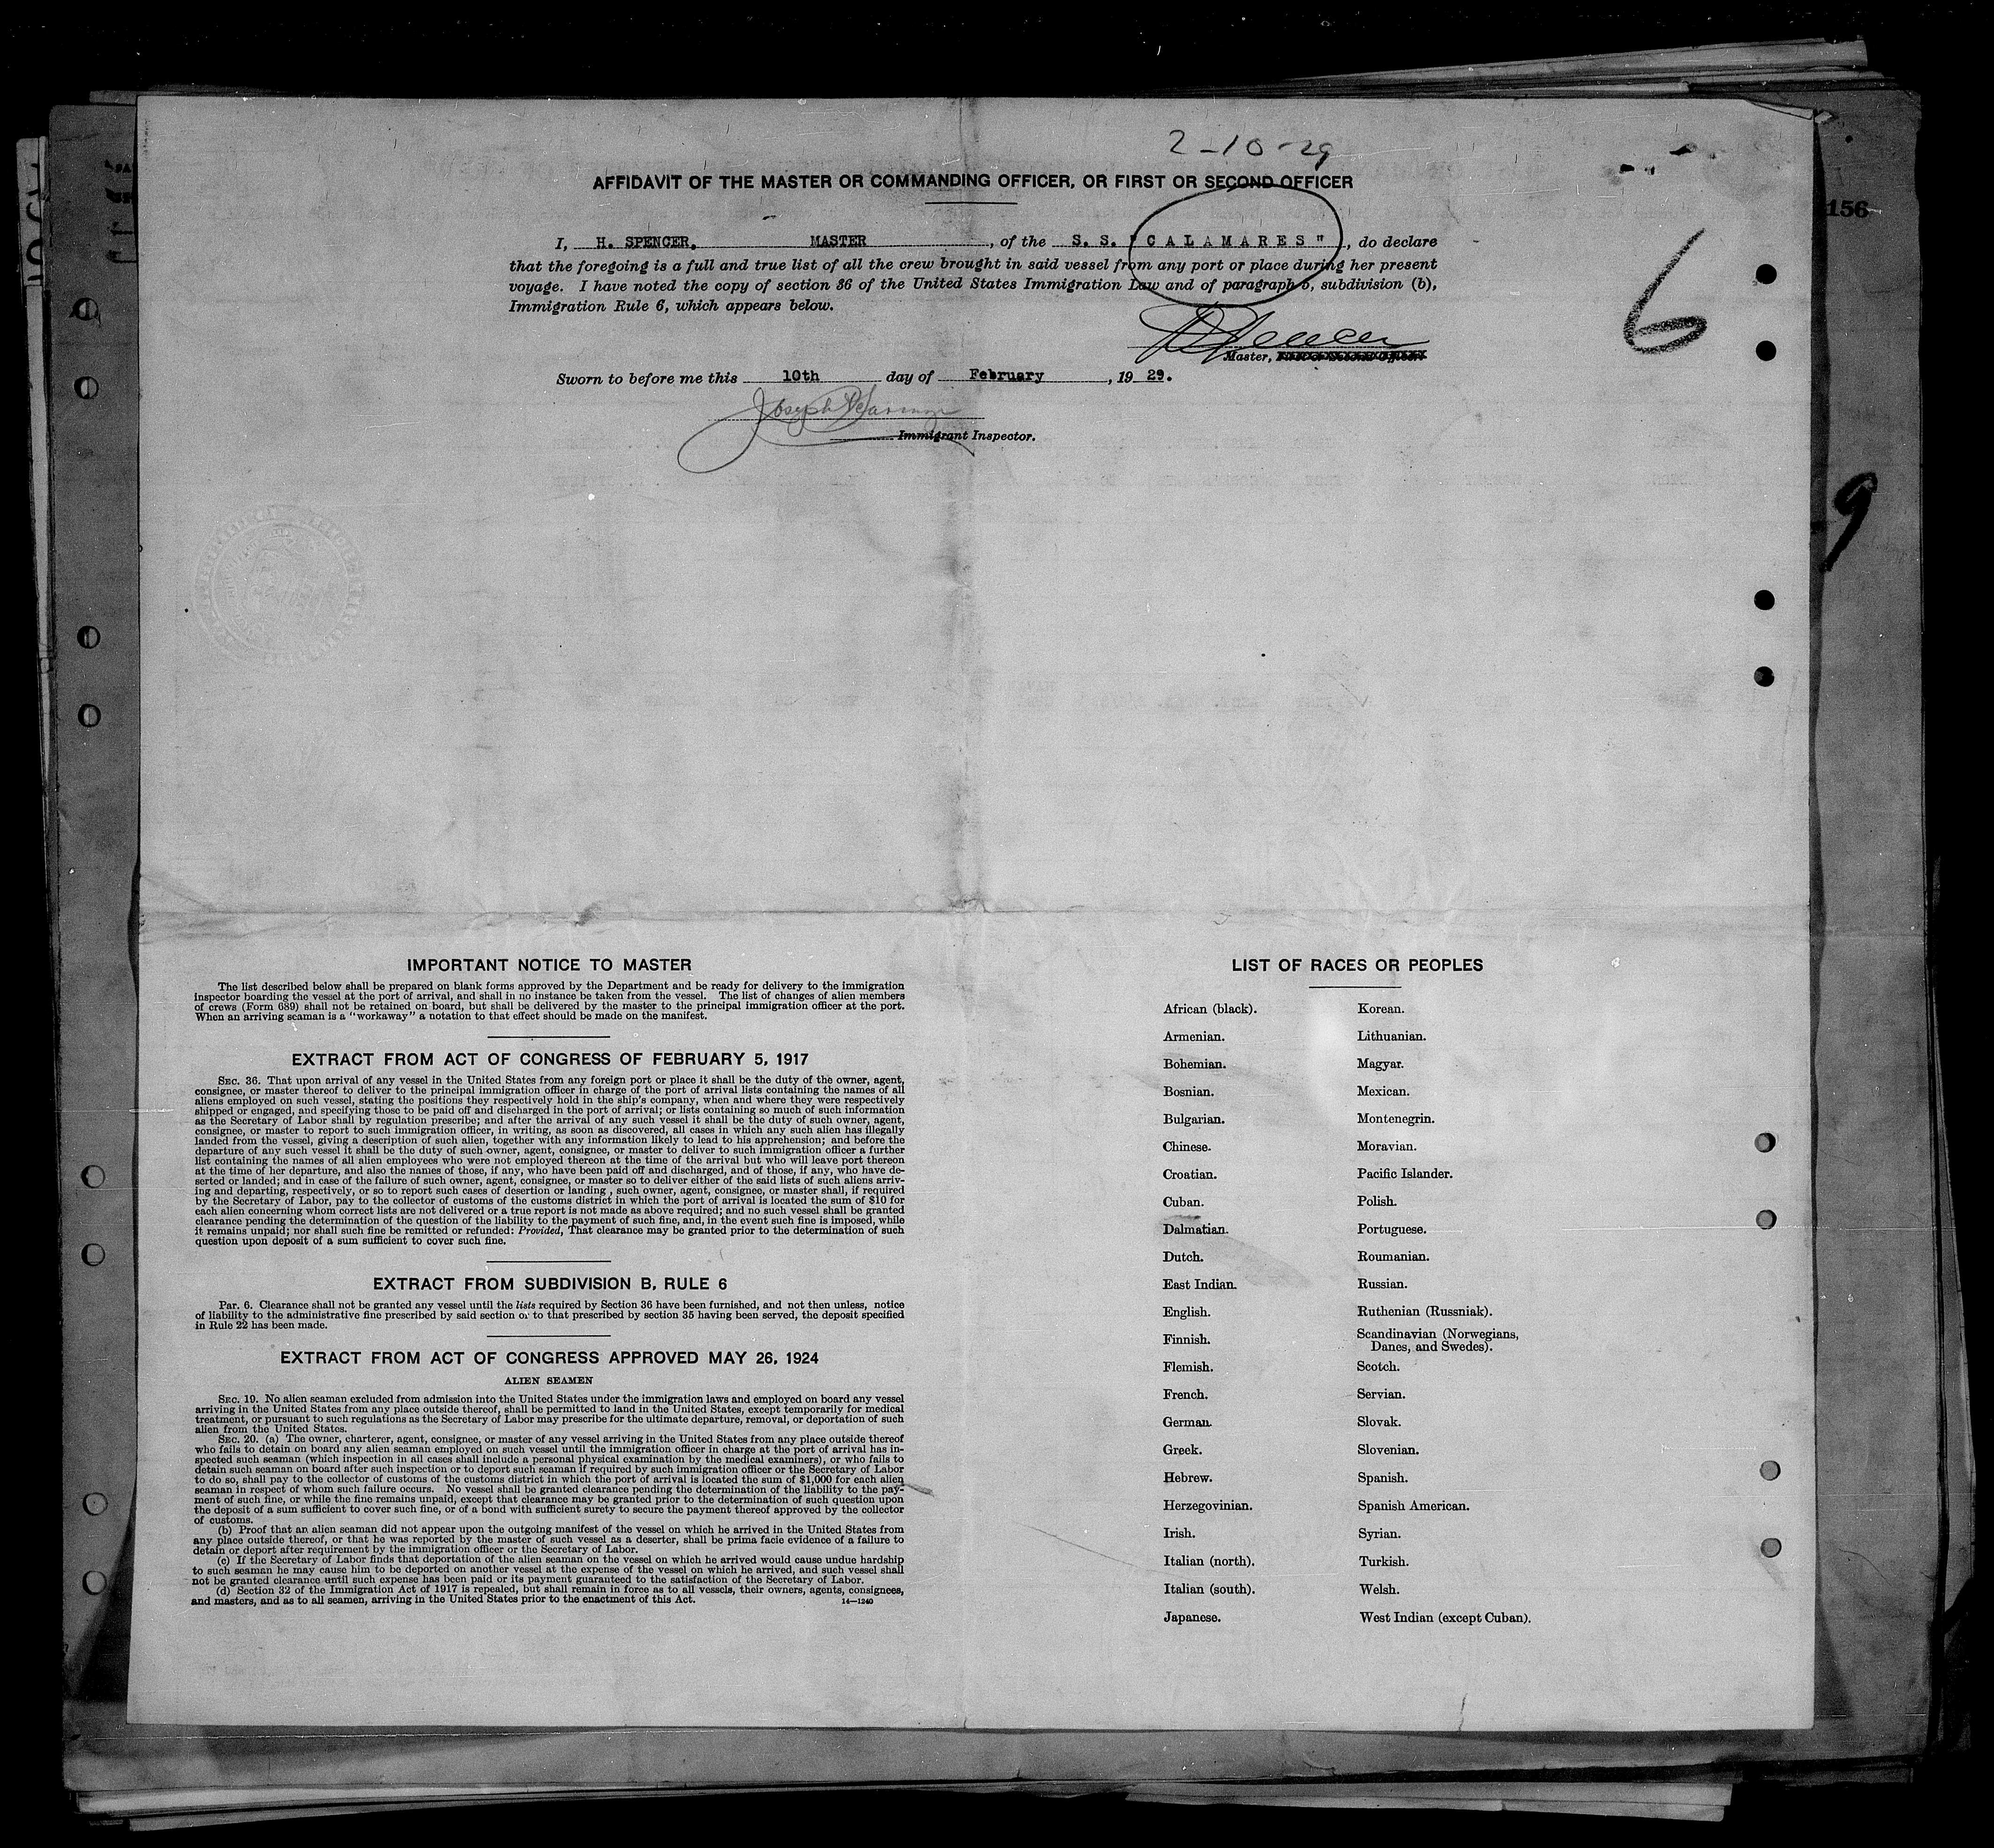 2-10-29
AFFIDAVIT OF THE MASTER OR COMMANDING OFFICER, OR FIRST OR SECOND OFFICER
156
I, H. SPENCER, MASTER, of the S. S. "CALAMARES", do declare
that the foregoing is a full and true list of all the crew brought in said vessel from any port or place during her present
voyage. I have noted the copy of section 36 of the United States Immigration Law and of paragraph 5, subdivision (b),
Immigration Rule 6, which appears below.
6
H Spencer
Master,
Sworn to before me this 10th day of February, 19 29.
Joseph
Immigrant Inspector.
9
IMPORTANT NOTICE TO MASTER
The list described below shall be prepared on blank forms approved by the Department and be ready for delivery to the immigration
inspector boarding the vessel at the port of arrival, and shall in no instance be taken from the vessel. The list of changes of alien members
of crews (Form 689) shall not be retained on board, but shall be delivered by the master to the principal immigration officer at the port.
When an arriving seaman is a "workaway" a notation to that effect should be made on the manifest.
EXTRACT FROM ACT OF CONGRESS OF FEBRUARY 5, 1917
SEC. 36. That upon arrival of any vessel in the United States from any foreign port or place it shall be the duty of the owner, agent,
consignee, or master thereof to deliver to the principal immigration officer in charge of the port of arrival lists containing the names of all
aliens employed on such vessel, stating the positions they respectively hold in the ship's company, when and where they were respectively
shipped or engaged, and specifying those to be paid off and discharged in the port of arrival; or lists containing so much of such information
as the Secretary of Labor shall by regulation prescribe; and after the arrival of any such vessel it shall be the duty of such owner, agent,
consignee, or master to report to such immigration officer, in writing, as soon as discovered, all cases in which any such alien has illegally
landed from the vessel, giving a description of such alien, together with any information likely to lead to his apprehension; and before the
departure of any such vessel it shall be the duty of such owner, agent, consignee, or master to deliver to such immigration officer a further
list containing the names of all alien employees who were not employed thereon at the time of the arrival but who will leave port thereon
at the time of her departure, and also the names of those, if any, who have been paid off and discharged, and of those, if any, who have de-
serted or landed; and in case of the failure of such owner, agent, consignee, or master so to deliver either of the said lists of such aliens arriv-
ing and departing, respectively, or so to report such cases of desertion or landing , such owner, agent, consignee, or master shall, if required
by the Secretary of Labor, pay to the collector of customs of the customs district in which the port of arrival is located the sum of $10 for
each alien concerning whom correct lists are not delivered or a true report is not made as above required; and no such vessel shall be granted
clearance pending the determination of the question of the liability to the payment of such fine, and, in the event such fine is imposed, while
it remains unpaid; nor shall such fine be remitted or refunded: Provided, That clearance may be granted prior to the determination of such
question upon deposit of a sum sufficient to cover such fine.
EXTRACT FROM SUBDIVISION B, RULE 6
Par. 6. Clearance shall not be granted any vessel until the lists required by Section 36 have been furnished, and not then unless, notice
of liability to the administrative fine prescribed by said section or to that prescribed by section 35 having been served, the deposit specified
in Rule 22 has been made.
EXTRACT FROM ACT OF CONGRESS APPROVED MAY 26, 1924
ALIEN SEAMEN
SEC. 19. No alien seaman excluded from admission into the United States under the immigration laws and employed on board any vessel
arriving in the United States from any place outside thereof, shall be permitted to land in the United States, except temporarily for medical
treatment, or pursuant to such regulations as the Secretary of Labor may prescribe for the ultimate departure, removal, or deportation of such
alien from the United States.
SEC. 20. (a) The owner, charterer, agent, consignee, or master of any vessel arriving in the United States from any place outside thereof
who fails to detain on board any alien seaman employed on such vessel until the immigration officer in charge at the port of arrival has in-
spected such seaman (which inspection in all cases shall include a personal physical examination by the medical examiners), or who fails to
detain such seaman on board after such inspection or to deport such seaman if required by such immigration officer or the Secretary of Labor
to do so, shall pay to the collector of customs of the customs district in which the port of arrival is located the sum of $1,000 for each alien
seaman in respect of whom such failure occurs. No vessel shall be granted clearance pending the determination of the liability to the pay-
ment of such fine, or while the fine remains unpaid, except that clearance may be granted prior to the determination of such question upon
the deposit of a sum sufficient to cover such fine, or of a bond with sufficient surety to secure the payment thereof approved by the collector
of customs.
(b) Proof that an alien seaman did not appear upon the outgoing manifest of the vessel on which he arrived in the United States from
any place outside thereof, or that he was reported by the master of such vessel as a deserter, shall be prima facie evidence of a failure to
detain or deport after requirement by the immigration officer or the Secretary of Labor.
(c) If the Secretary of Labor finds that deportation of the alien seaman on the vessel on which he arrived would cause undue hardship
to such seaman he may cause him to be deported on another vessel at the expense of the vessel on which he arrived, and such vessel shall
not be granted clearance until such expense has been paid or its payment guaranteed to the satisfaction of the Secretary of Labor.
(d) Section 32 of the Immigration Act of 1917 is repealed, but shall remain in force as to all vessels, their owners, agents, consignees,
and masters, and as to all seamen, arriving in the United States prior to the enactment of this Act.
14—1240
LIST OF RACES OR PEOPLES
African (black).
Armenian.
Bohemian.
Bosnian.
Bulgarian.
Chinese.
Croatian.
Cuban.
Dalmatian.
Dutch.
East Indian.
English.
Finnish.
Flemish.
French.
German.
Greek.
Hebrew.
Herzegovinian.
Irish.
Italian (north).
Italian (south).
Japanese.
Korean.
Lithuanian.
Magyar.
Mexican.
Montenegrin.
Moravian.
Pacific Islander.
Polish.
Portuguese.
Roumanian.
Russian.
Ruthenian (Russniak).
Scandinavian (Norwegians,
Danes, and Swedes).
Scotch.
Servian.
Slovak.
Slovenian.
Spanish.
Spanish American.
Syrian.
Turkish.
Welsh.
West Indian (except Cuban).